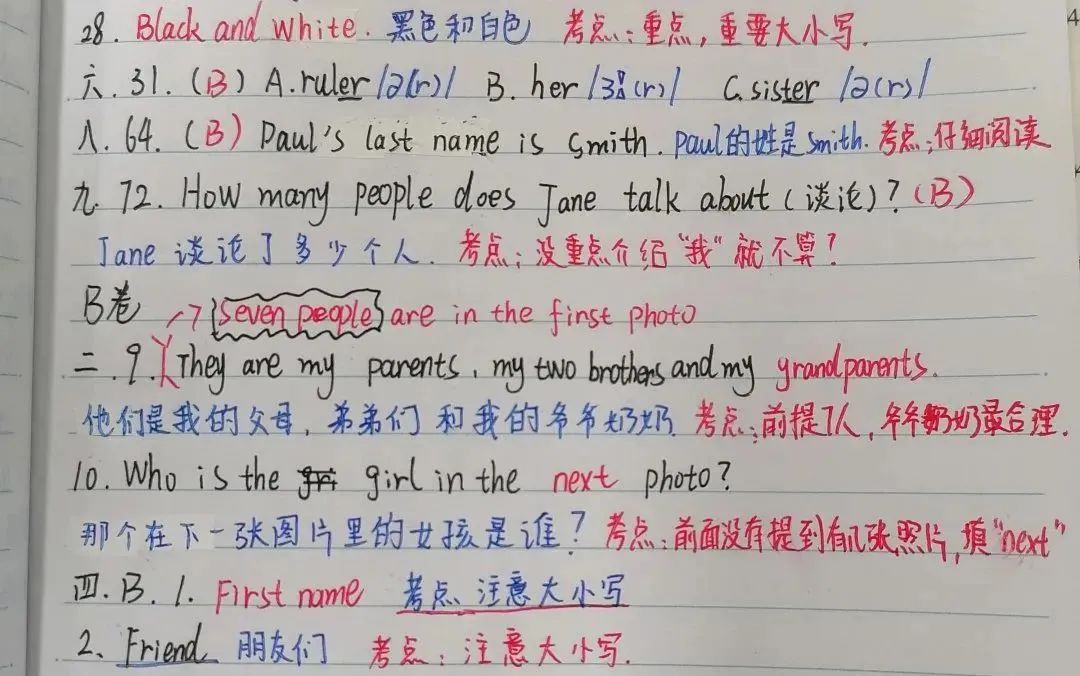 28. Black and white. 黑色和白色 考点:重点,重要大小写.
六. 31. (B) A. ruler /ə(r)/ B. her /ɜː(r)/ C. sister /ə(r)/
八. 64. (B) Paul's last name is Smith. Paul的姓是Smith. 考点:仔细阅读
九. 72. How many people does Jane talk about (谈论)? (B)
Jane 谈论了多少个人. 考点:没重点介绍"我"就不算?
B卷 → Seven people are in the first photo
二. 9. They are my parents, my two brothers and my grandparents.
他们是我的父母, 弟弟们 和我的爷爷奶奶. 考点:前提7人,爷爷奶奶最合理.
10. Who is the girl in the next photo?
那个在下一张图片里的女孩是谁? 考点:前面没有提到有几张照片,填"next"
四. B. 1. First name 考点、注意大小写
2、Friend 朋友们 考点:注意大小写.